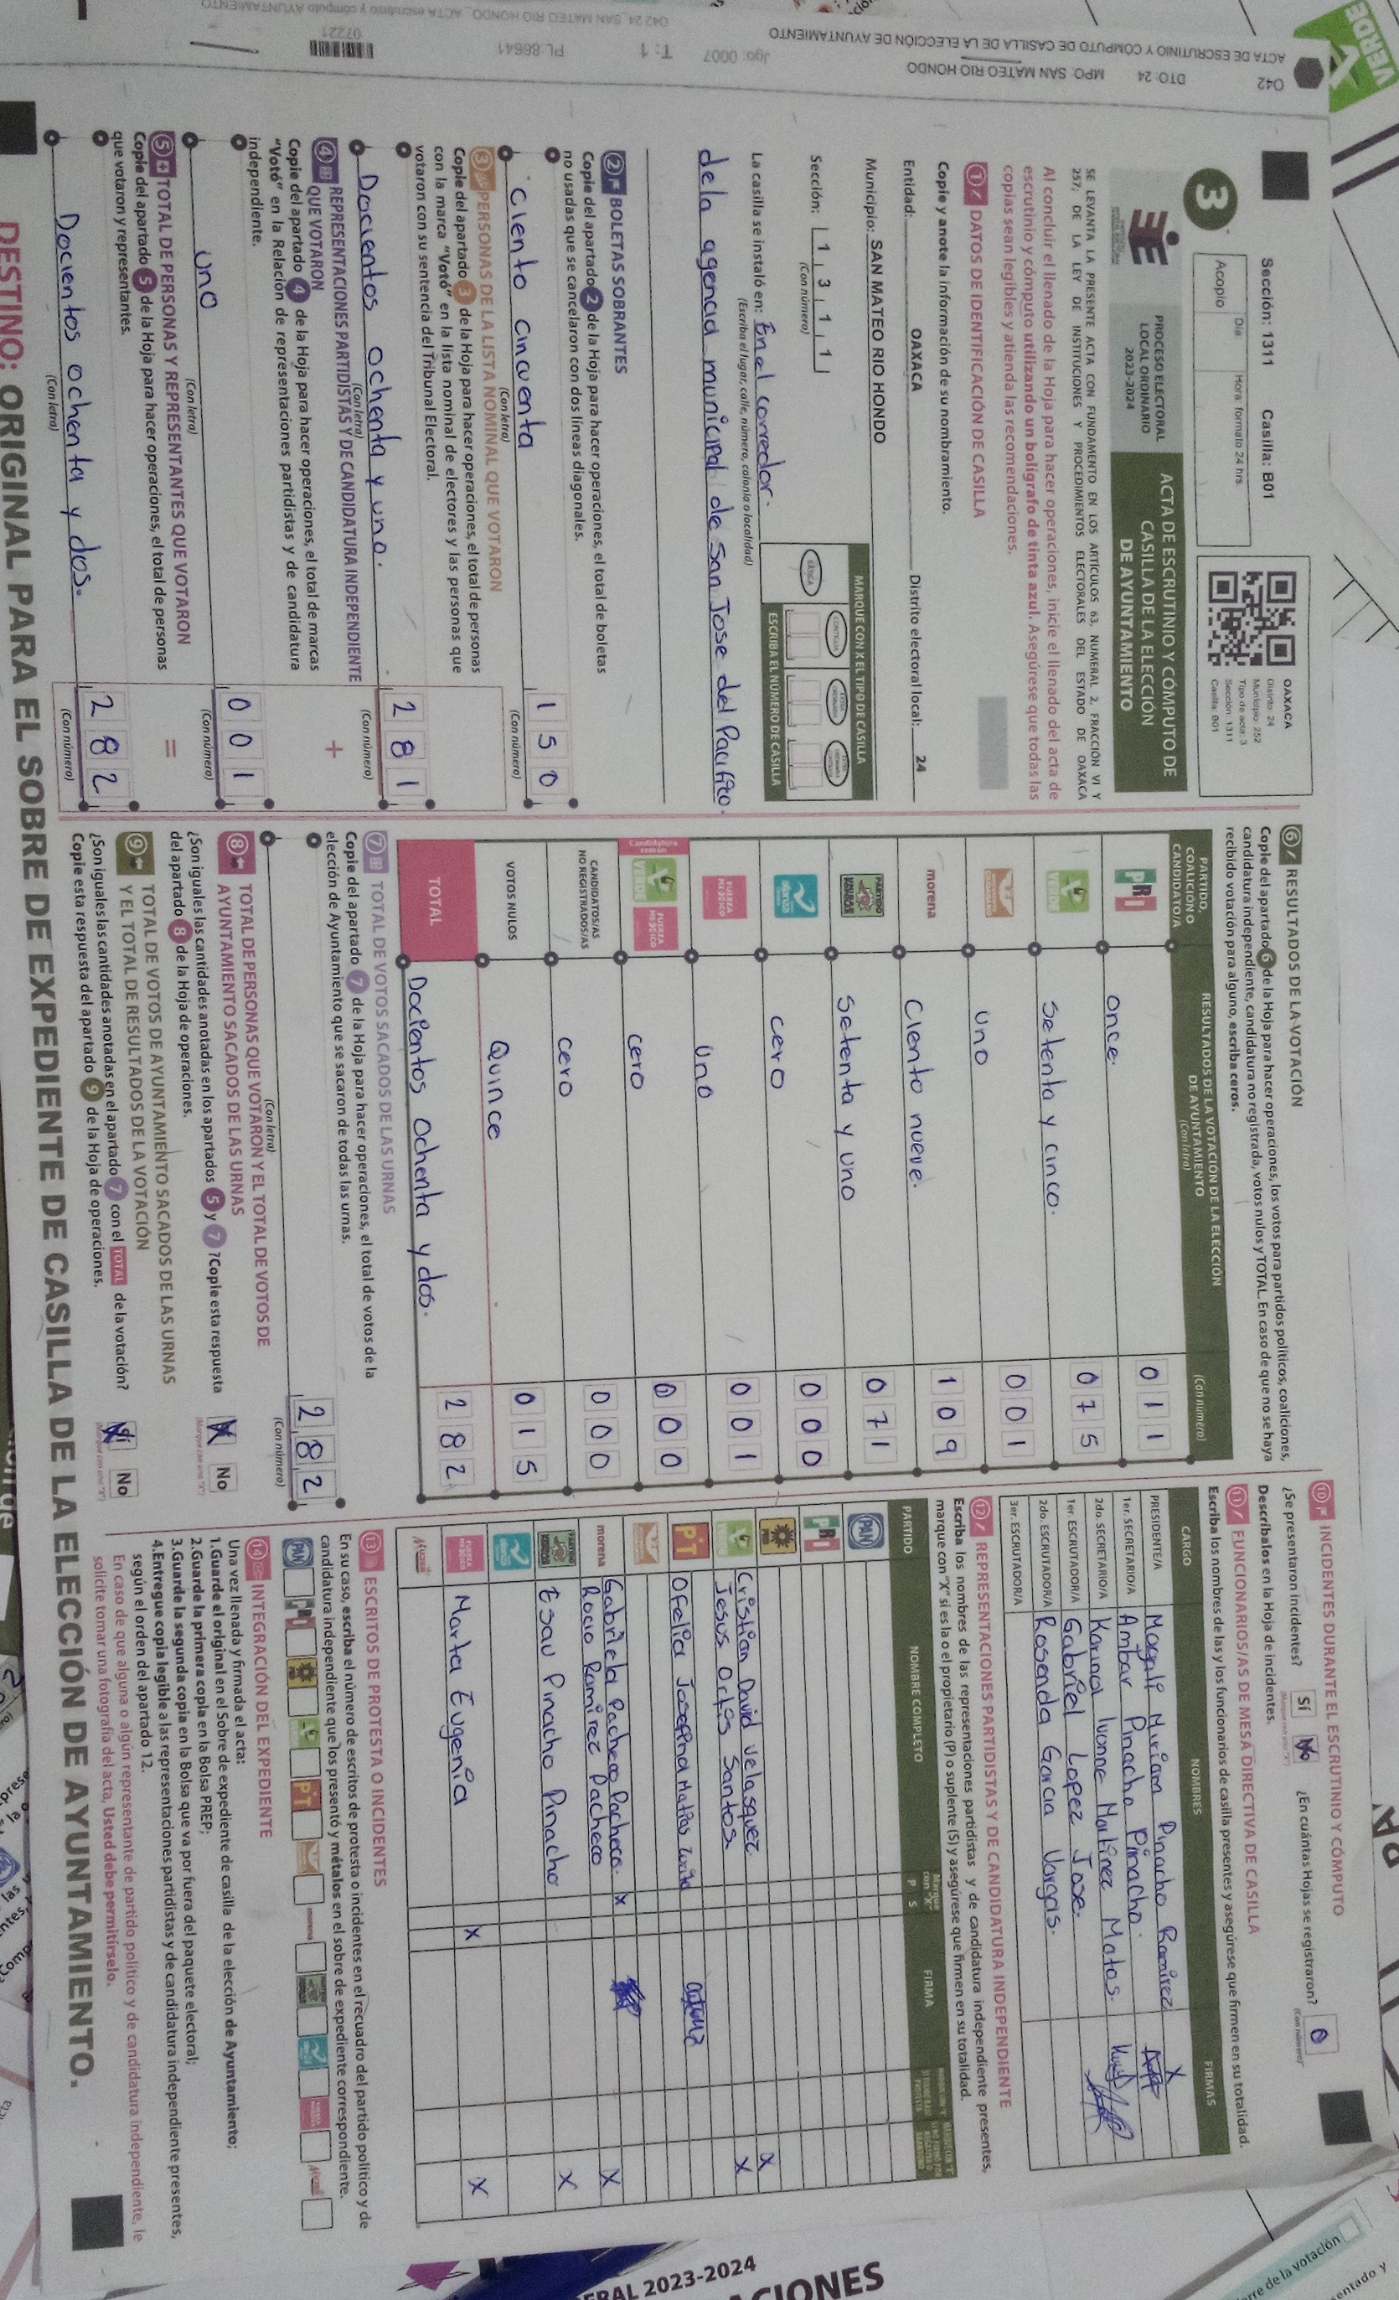 VERDE
042
ACTA DE ESCRUTINIO Y CÓMPUTO DE CASILLA DE LA ELECCIÓN DE AYUNTAMIENTO
DTO: 24 MPO: SAN MATEO RIO HONDO
Jgo: 0007 T: 1 PL 86641
07221
Sección: 1311 Casilla: B01
3
Día Hora: formato 24 hrs
Acopio
OAXACA
Distrito: 24
Municipio: 252
Tipo de acta: 3
Sección: 1311
Casilla: B01
PROCESO ELECTORAL
LOCAL ORDINARIO
2023-2024
ACTA DE ESCRUTINIO Y CÓMPUTO DE
CASILLA DE LA ELECCIÓN
DE AYUNTAMIENTO
SE LEVANTA LA PRESENTE ACTA CON FUNDAMENTO EN LOS ARTÍCULOS 63, NUMERAL 2, FRACCIÓN VI Y
257; DE LA LEY DE INSTITUCIONES Y PROCEDIMIENTOS ELECTORALES DEL ESTADO DE OAXACA
Al concluir el llenado de la Hoja para hacer operaciones, inicie el llenado del acta de
escrutinio y cómputo utilizando un bolígrafo de tinta azul. Asegúrese que todas las
copias sean legibles y atienda las recomendaciones.
1 DATOS DE IDENTIFICACIÓN DE CASILLA
Copie y anote la información de su nombramiento.
Entidad: OAXACA Distrito electoral local: 24
Municipio: SAN MATEO RIO HONDO
Sección: 1 3 1 1
(Con número)
MARQUE CON X EL TIPO DE CASILLA
BÁSICA
ESCRIBA EL NÚMERO DE CASILLA
La casilla se instaló en: En el corredor.
(Escriba el lugar, calle, número, colonia o localidad)
de la agencia municipal de San Jose del Pacifico.
2 BOLETAS SOBRANTES
Copie del apartado 2 de la Hoja para hacer operaciones, el total de boletas
no usadas que se cancelaron con dos líneas diagonales.
ciento cincuenta 1 5 0
(Con letra) (Con número)
3 PERSONAS DE LA LISTA NOMINAL QUE VOTARON
Copie del apartado 3 de la Hoja para hacer operaciones, el total de personas
con la marca "Votó" en la lista nominal de electores y las personas que
votaron con su sentencia del Tribunal Electoral.
Docientos ochenta y uno. 2 8 1
(Con letra) (Con número)
4 REPRESENTACIONES PARTIDISTAS Y DE CANDIDATURA INDEPENDIENTE
QUE VOTARON
+
Copie del apartado 4 de la Hoja para hacer operaciones, el total de marcas
"Votó" en la Relación de representaciones partidistas y de candidatura
independiente.
uno 0 0 1
(Con letra) (Con número)
5 TOTAL DE PERSONAS Y REPRESENTANTES QUE VOTARON
=
Copie del apartado 5 de la Hoja para hacer operaciones, el total de personas
que votaron y representantes.
Docientos ochenta y dos. 2 8 2
(Con letra) (Con número)
6 RESULTADOS DE LA VOTACIÓN
Copie del apartado 6 de la Hoja para hacer operaciones, los votos para partidos políticos, coaliciones,
candidatura independiente, candidatura no registrada, votos nulos y TOTAL. En caso de que no se haya
recibido votación para alguno, escriba ceros.
PARTIDO, COALICIÓN O CANDIDATO/A
RESULTADOS DE LA VOTACIÓN DE LA ELECCIÓN DE AYUNTAMIENTO (Con letra)
(Con número)
PRI once. 0 1 1
VERDE Setenta y cinco. 0 7 5
uno 0 0 1
morena Ciento nueve. 1 0 9
Setenta y uno 0 7 1
cero 0 0 0
FUERZA MÉXICO uno 0 0 1
Candidatura común
VERDE FUERZA MÉXICO cero 0 0 0
CANDIDATOS/AS NO REGISTRADOS/AS cero 0 0 0
VOTOS NULOS Quince 0 1 5
TOTAL Docientos Ochenta y dos. 2 8 2
7 TOTAL DE VOTOS SACADOS DE LAS URNAS
Copie del apartado 7 de la Hoja para hacer operaciones, el total de votos de la
elección de Ayuntamiento que se sacaron de todas las urnas.
2 8 2
(Con letra) (Con número)
8 TOTAL DE PERSONAS QUE VOTARON Y EL TOTAL DE VOTOS DE
AYUNTAMIENTO SACADOS DE LAS URNAS
¿Son iguales las cantidades anotadas en los apartados 5 y 7? Copie esta respuesta
del apartado 8 de la Hoja de operaciones.
No
9 TOTAL DE VOTOS DE AYUNTAMIENTO SACADOS DE LAS URNAS
Y EL TOTAL DE RESULTADOS DE LA VOTACIÓN
¿Son iguales las cantidades anotadas en el apartado 7 con el TOTAL de la votación?
Copie esta respuesta del apartado 9 de la Hoja de operaciones.
Sí No
10 INCIDENTES DURANTE EL ESCRUTINIO Y CÓMPUTO
¿Se presentaron incidentes? Sí No ¿En cuántas Hojas se registraron? 0
Descríbalos en la Hoja de incidentes.
11 FUNCIONARIOS/AS DE MESA DIRECTIVA DE CASILLA
Escriba los nombres de las y los funcionarios de casilla presentes y asegúrese que firmen en su totalidad.
CARGO NOMBRES FIRMAS
PRESIDENTE/A Magali Miriam Pinacho Ramirez
1er. SECRETARIO/A Ambar Pinacho Pinacho.
2do. SECRETARIO/A Karina Ivonne Martinez Matos.
1er. ESCRUTADOR/A Gabriel Lopez Jose.
2do. ESCRUTADOR/A Rosenda Garcia Vargas.
3er. ESCRUTADOR/A
12 REPRESENTACIONES PARTIDISTAS Y DE CANDIDATURA INDEPENDIENTE
Escriba los nombres de las representaciones partidistas y de candidatura independiente presentes,
marque con "X" si es la o el propietario (P) o suplente (S) y asegúrese que firmen en su totalidad.
PARTIDO NOMBRE COMPLETO P S FIRMA
PAN
PRI
PRD X
VERDE Cristian David Velasquez X
Jesus Ortis Santos
PT Ofelia Josefina Matias
morena Gabriela Pacheco Pacheco. X X
Rocio Ramirez Pacheco
Esau Pinacho Pinacho X
FUERZA MÉXICO Marta Eugenia X X
13 ESCRITOS DE PROTESTA O INCIDENTES
En su caso, escriba el número de escritos de protesta o incidentes en el recuadro del partido político y de
candidatura independiente que los presentó y métalos en el sobre de expediente correspondiente.
14 INTEGRACIÓN DEL EXPEDIENTE
Una vez llenada y firmada el acta:
1.Guarde el original en el Sobre de expediente de casilla de la elección de Ayuntamiento;
2.Guarde la primera copia en la Bolsa PREP;
3.Guarde la segunda copia en la Bolsa que va por fuera del paquete electoral;
4.Entregue copia legible a las representaciones partidistas y de candidatura independiente presentes,
según el orden del apartado 12.
En caso de que alguna o algún representante de partido político y de candidatura independiente, le
solicite tomar una fotografía del acta, Usted debe permitírselo.
DESTINO: ORIGINAL PARA EL SOBRE DE EXPEDIENTE DE CASILLA DE LA ELECCIÓN DE AYUNTAMIENTO.
ERAL 2023-2024
CIONES
rre de la votación